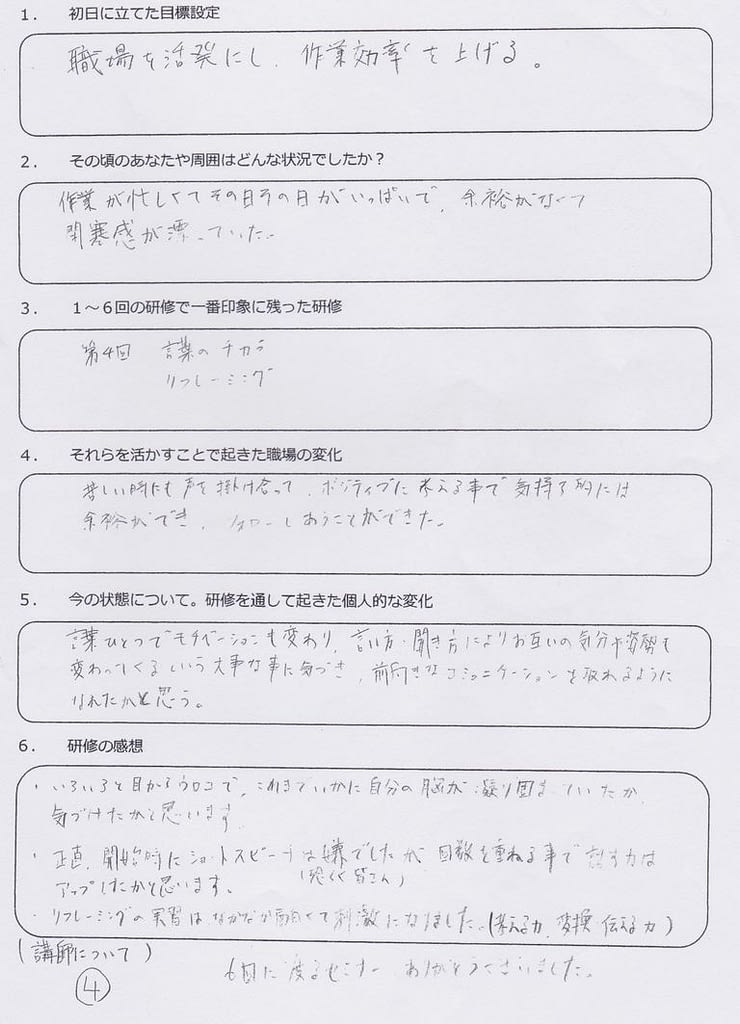 1. 初日に立てた目標設定
職場を活発にし、作業効率を上げる。
2. その頃のあなたや周囲はどんな状況でしたか？
作業が忙しくてその日その日がいっぱいで、余裕がなくて
閉塞感が漂っていた。
3. 1～6回の研修で一番印象に残った研修
第4回 言葉のチカラ
リフレーミング
4. それらを活かすことで起きた職場の変化
苦しい時にも声を掛け合って、ポジティブに考える事で気持ち的には
余裕ができ、フォローしあうことができた。
5. 今の状態について。研修を通して起きた個人的な変化
言葉ひとつでモチベーションも変わり、言い方・聞き方によりお互いの気分や姿勢も
変わってくるという大事な事に気づき、前向きなコミュニケーションを取れるように
なれたかと思う。
6. 研修の感想
・いろいろと目からウロコで、これまでいかに自分の脳が凝り固まっていたか
気づけたかと思います。
・正直、開始時にショートスピーチは嫌でしたが、回数を重ねる事で話す力は
アップしたかと思います。(恐らく皆さん)
・リフレーミングの実習はなかなか面白くて刺激になりました。(考える力、変換、伝える力)
(講師について)
6回に渡るセミナーありがとうございました。
④